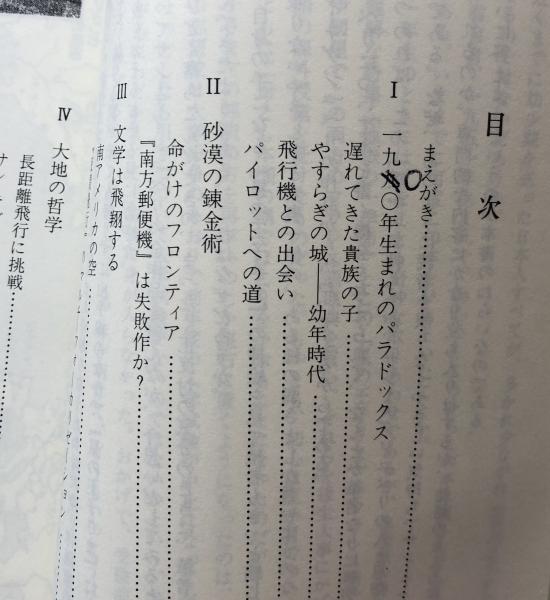 目次
まえがき
I 一九0〇年生まれのパラドックス
遅れてきた貴族の子
やすらぎの城――幼年時代
飛行機との出会い
パイロットへの道
II 砂漠の錬金術
命がけのフロンティア
『南方郵便機』は失敗作か?
III 文学は飛翔する
南アメリカの空
IV 大地の哲学
長距離飛行に挑戦